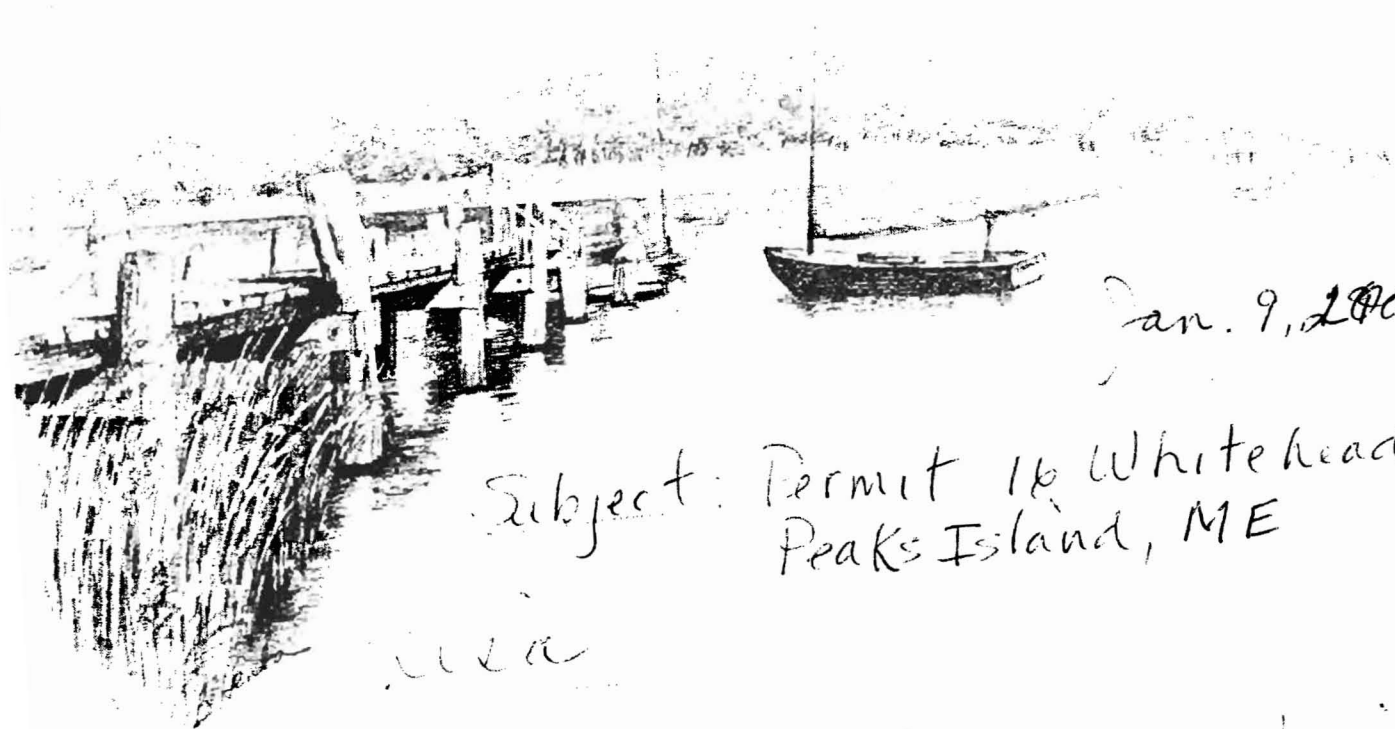 Jan. 9,
Subject: Permit 16 Whitehead
Peaks Island, ME